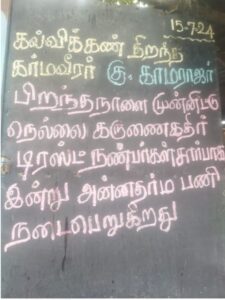 15-7-24
கல்விக்கண் திறந்த
கர்மவீரர் கு. காமராஜர்
பிறந்தநாளை முன்னிட்டு
நெல்லை கருணைகதிர்
டிரஸ்ட் நண்பர்கள் சார்பாக
இன்று அன்னதர்ம பணி
நடைபெறுகிறது